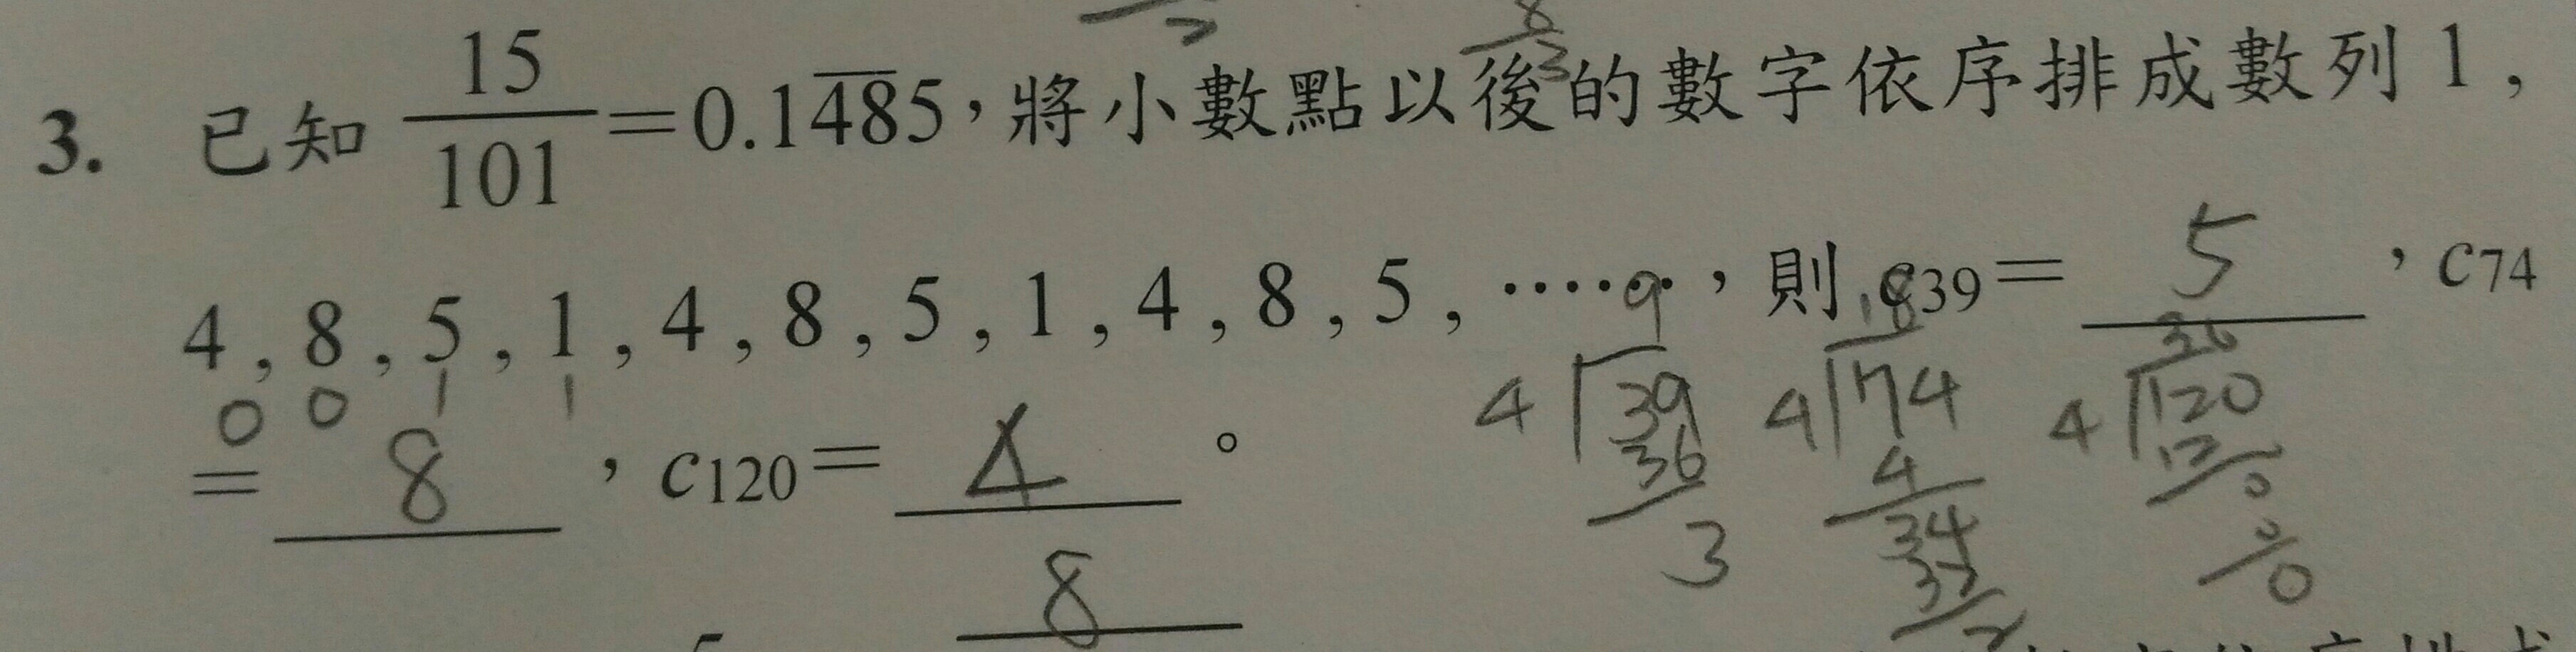 3. 已知 15/101=0.1485，將小數點以後的數字依序排成數列 1，
4 , 8 , 5 , 1 , 4 , 8 , 5 , 1 , 4 , 8 , 5 , ……，則 c39= 5 ，c74
0 0 1 1
= 8 ，c120= 4 。
9
4 39
36
3
18
4 74
4
34
32
2
30
4 120
12
0
0
0
8